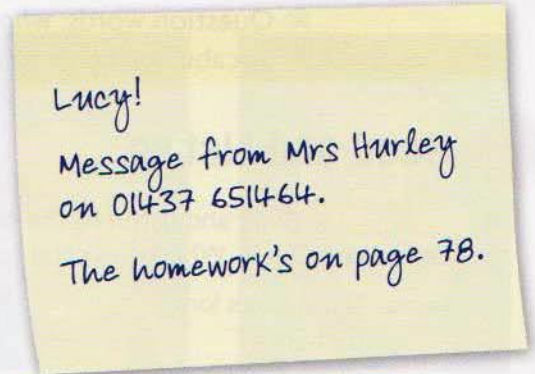 Lucy!
Message from Mrs Hurley
on 01437 651464.
The homework's on page 78.